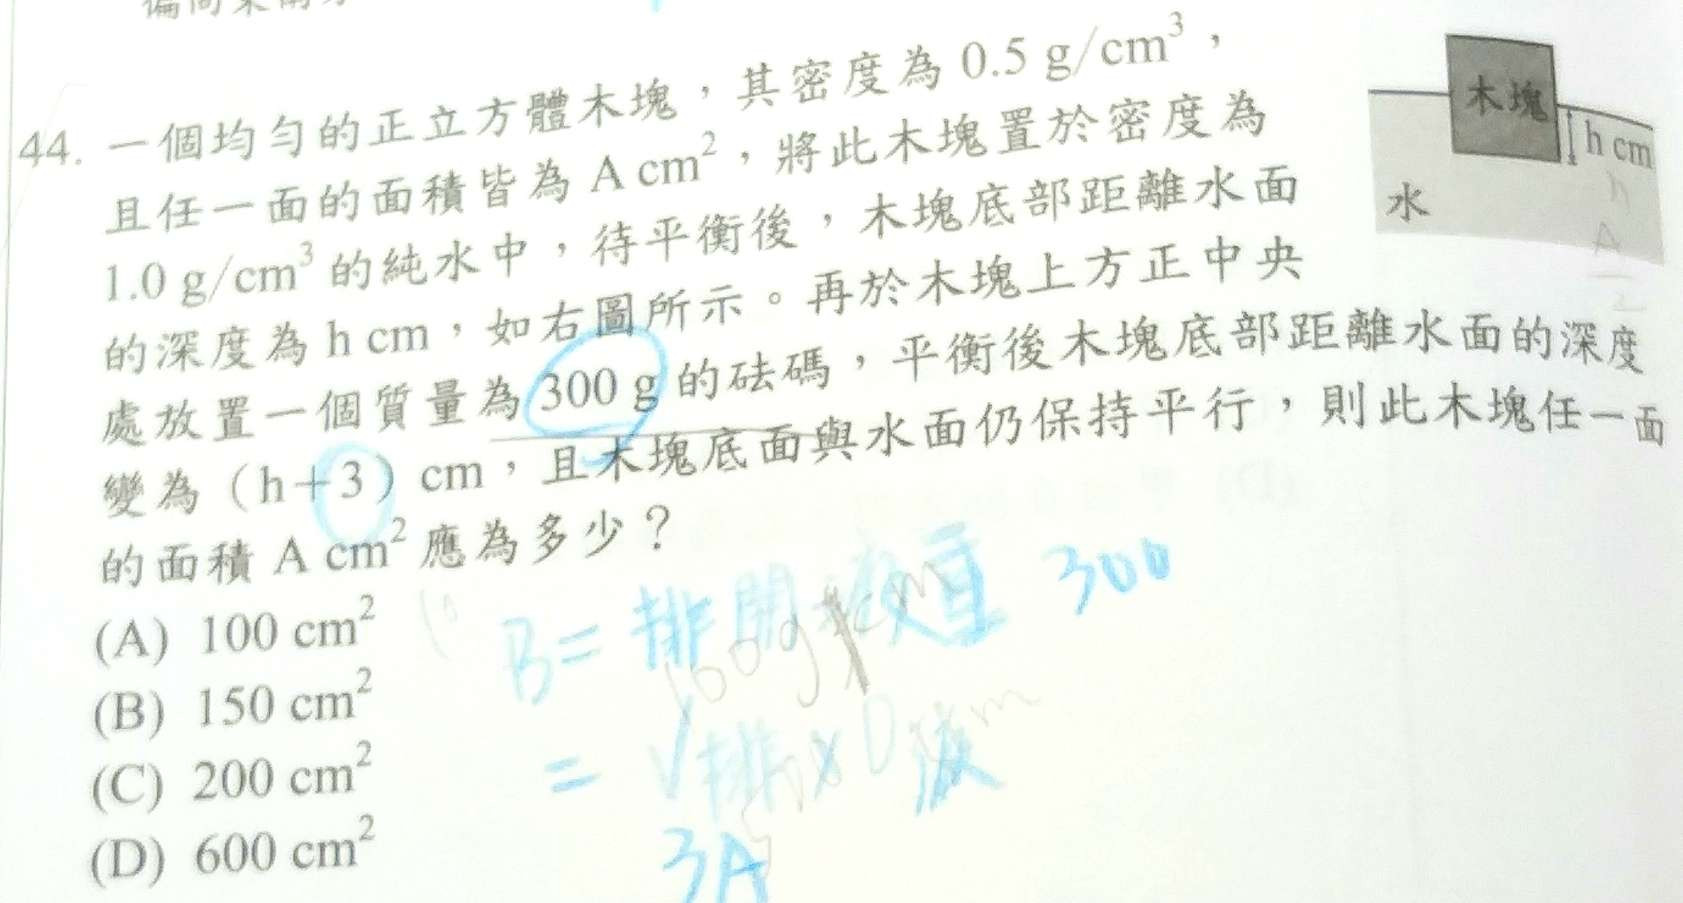 44. 一個均勻的正立方體木塊，其密度為 0.5 g/cm³，
且任一面的面積皆為 A cm²，將此木塊置於密度為
1.0 g/cm³ 的純水中，待平衡後，木塊底部距離水面
的深度為 h cm，如右圖所示。再於木塊上方正中央
處放置一個質量為 300 g 的砝碼，平衡後木塊底部距離水面的深度
變為（h+3）cm，且木塊底面與水面仍保持平行，則此木塊任一面
的面積 A cm² 應為多少？
(A) 100 cm²
(B) 150 cm²
(C) 200 cm²
(D) 600 cm²
木塊
h cm
水
h
A
2
B = 排開液重 300
= V排 × D液
3A